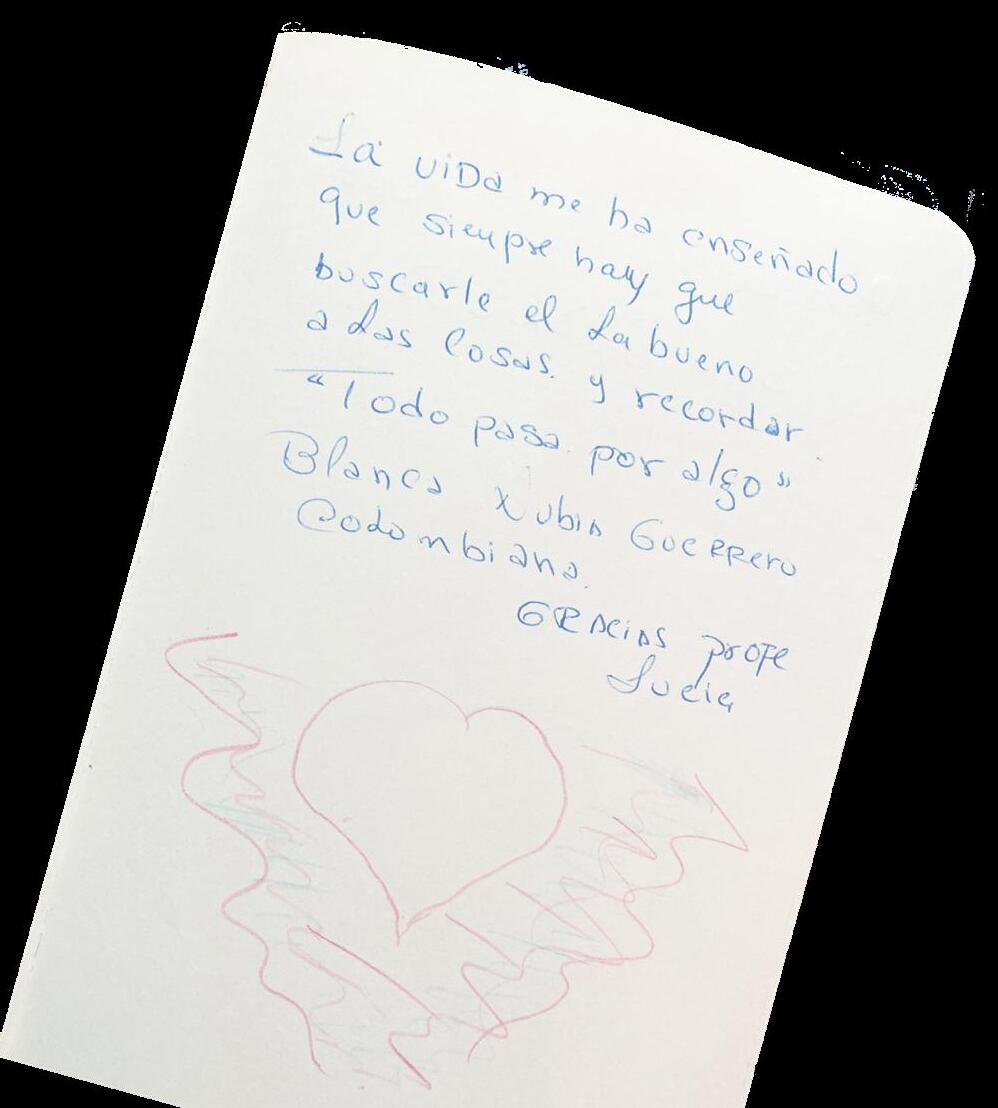 La vida me ha enseñado
que siempre hay que
buscarle el La bueno
a las cosas. y recordar
"Todo pasa. por algo"
Blanca Nubia Guerrero
Colombiana.
Gracias profe
Lucia